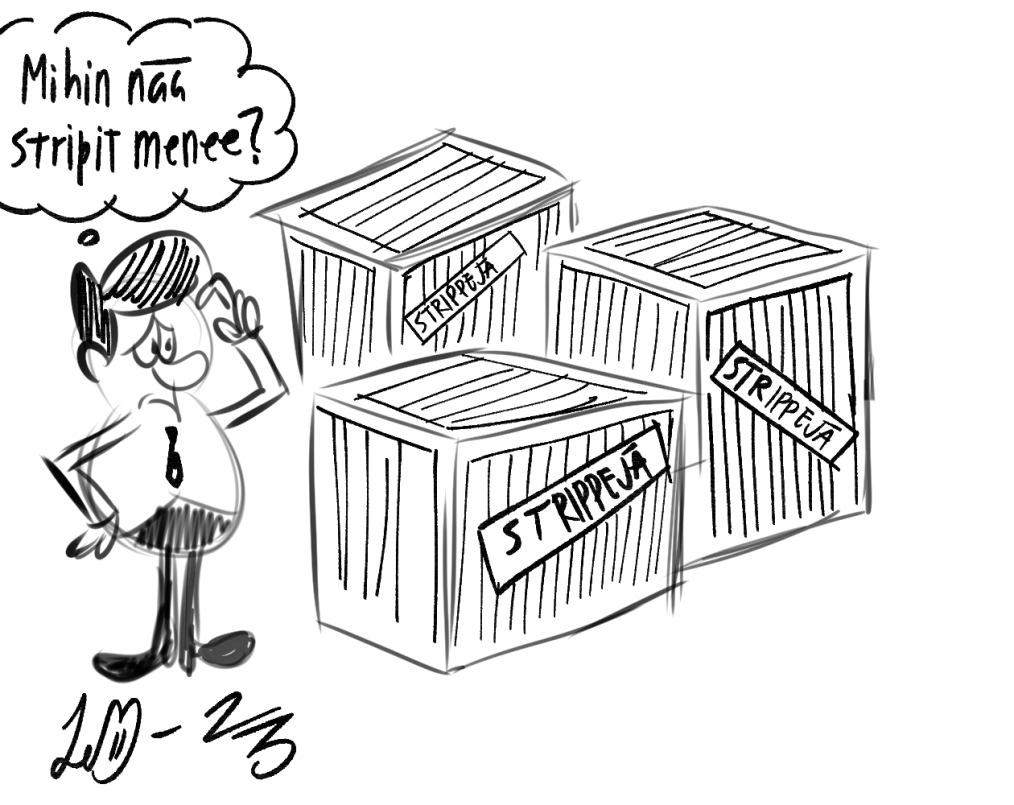 Mihin nää
stripit menee?
STRIPPEJÄ
STRIPPEJÄ
STRIPPEJÄ
-23